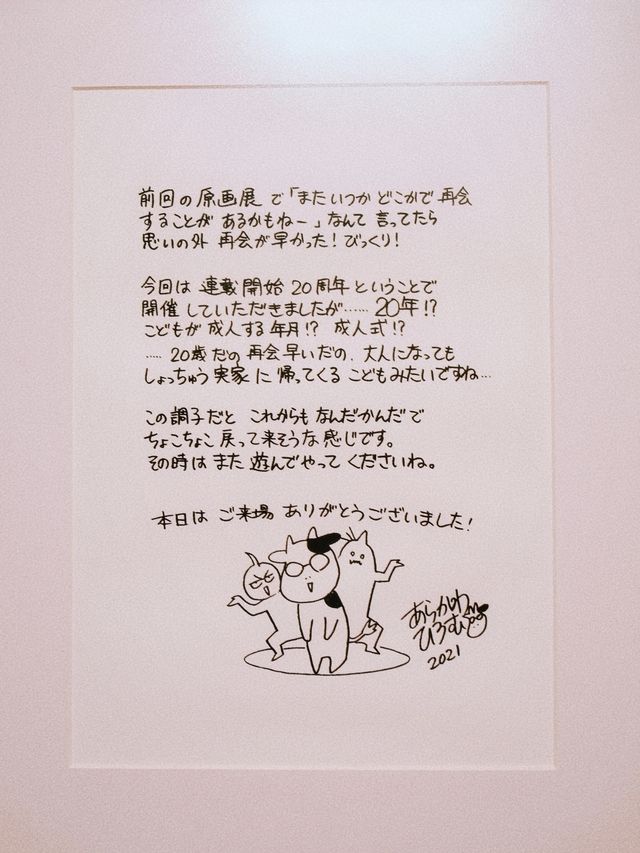 前回の原画展で「またいつかどこかで再会
することがあるかもねー」なんて言ってたら
思いの外再会が早かった!びっくり!
今回は連載開始20周年ということで
開催していただきましたが……20年!?
こどもが成人する年月!?成人式!?
……20歳だの再会早いだの、大人になっても
しょっちゅう実家に帰ってくるこどもみたいですね…
この調子だとこれからもなんだかんだで
ちょこちょこ戻って来そうな感じです。
その時はまた遊んでやってくださいね。
本日はご来場ありがとうございました!
あらかわ
ひろむ
2021